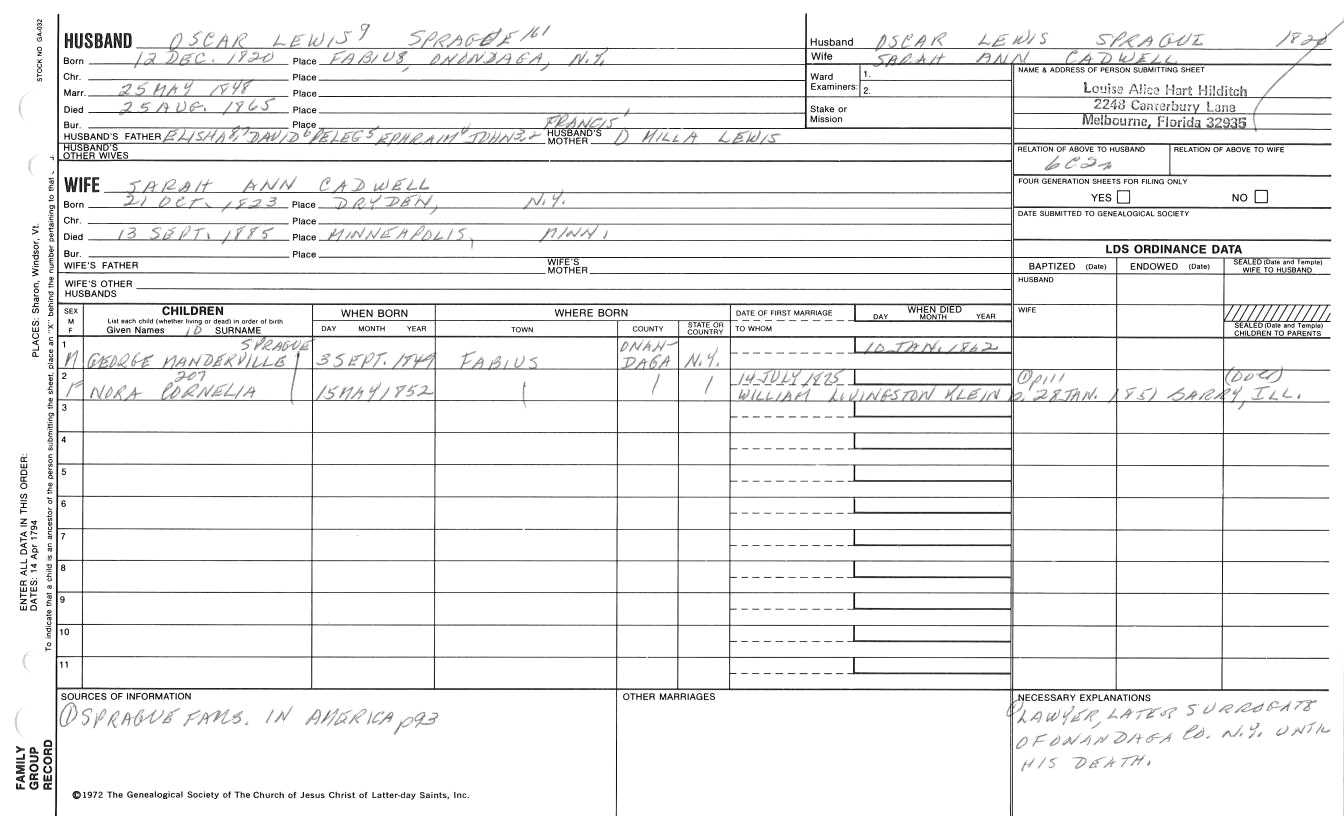 STOCK NO. GA-032
HUSBAND OSCAR LEWIS9 SPRAGUE 161
Born 12 DEC. 1820 Place FABIUS, ONONDAGA, N.Y.
Chr. Place
Marr. 25 MAY 1848 Place
Died 25 AUG. 1865 Place
Bur. Place
HUSBAND'S FATHER ELISHA8, 7 DAVID6 PELEG5 EPHRAIM4 JOHN3,2 FRANCIS1 HUSBAND'S MOTHER MILLA LEWIS
HUSBAND'S OTHER WIVES
Husband OSCAR LEWIS SPRAGUE 1820
Wife SARAH ANN CADWELL
Ward Examiners: 1. 2.
Stake or Mission
NAME & ADDRESS OF PERSON SUBMITTING SHEET
Louise Alice Hart Hilditch
2248 Canterbury Lane
Melbourne, Florida 32935
RELATION OF ABOVE TO HUSBAND RELATION OF ABOVE TO WIFE
6C2r
FOUR GENERATION SHEETS FOR FILING ONLY
YES NO
DATE SUBMITTED TO GENEALOGICAL SOCIETY
WIFE SARAH ANN CADWELL
Born 21 OCT. 1823 Place DRYDEN, N.Y.
Chr. Place
Died 13 SEPT. 1885 Place MINNEAPOLIS, MINN.
Bur. Place
WIFE'S FATHER WIFE'S MOTHER
WIFE'S OTHER HUSBANDS
LDS ORDINANCE DATA
BAPTIZED (Date) ENDOWED (Date) SEALED (Date and Temple) WIFE TO HUSBAND
HUSBAND
WIFE
SEALED (Date and Temple) CHILDREN TO PARENTS
SEX M F
CHILDREN
List each child (whether living or dead) in order of birth
Given Names 10 SURNAME
WHEN BORN
DAY MONTH YEAR
WHERE BORN
TOWN COUNTY STATE OR COUNTRY
DATE OF FIRST MARRIAGE
TO WHOM
WHEN DIED
DAY MONTH YEAR
1 M GEORGE MANDERVILLE SPRAGUE 3 SEPT. 1849 FABIUS ONANDAGA N.Y. 10 JAN. 1862
2 F NORA CORNELIA 207 15 MAY 1852 14 JULY 1875
WILLIAM LIVINGSTON KLEIN b. 28 JAN. 1851 BARRY, ILL.
① p111
3
4
5
6
7
8
9
10
11
SOURCES OF INFORMATION
① SPRAGUE FAMS. IN AMERICA p93
OTHER MARRIAGES
NECESSARY EXPLANATIONS
① LAWYER, LATER SURROGATE
OF ONANDAGA CO. N.Y. UNTIL
HIS DEATH.
©1972 The Genealogical Society of The Church of Jesus Christ of Latter-day Saints, Inc.
PLACES: Sharon, Windsor, Vt.
ENTER ALL DATA IN THIS ORDER:
DATES: 14 Apr 1794
To indicate that a child is an ancestor of the person submitting the sheet, place an "X" behind the number pertaining to that
FAMILY GROUP RECORD